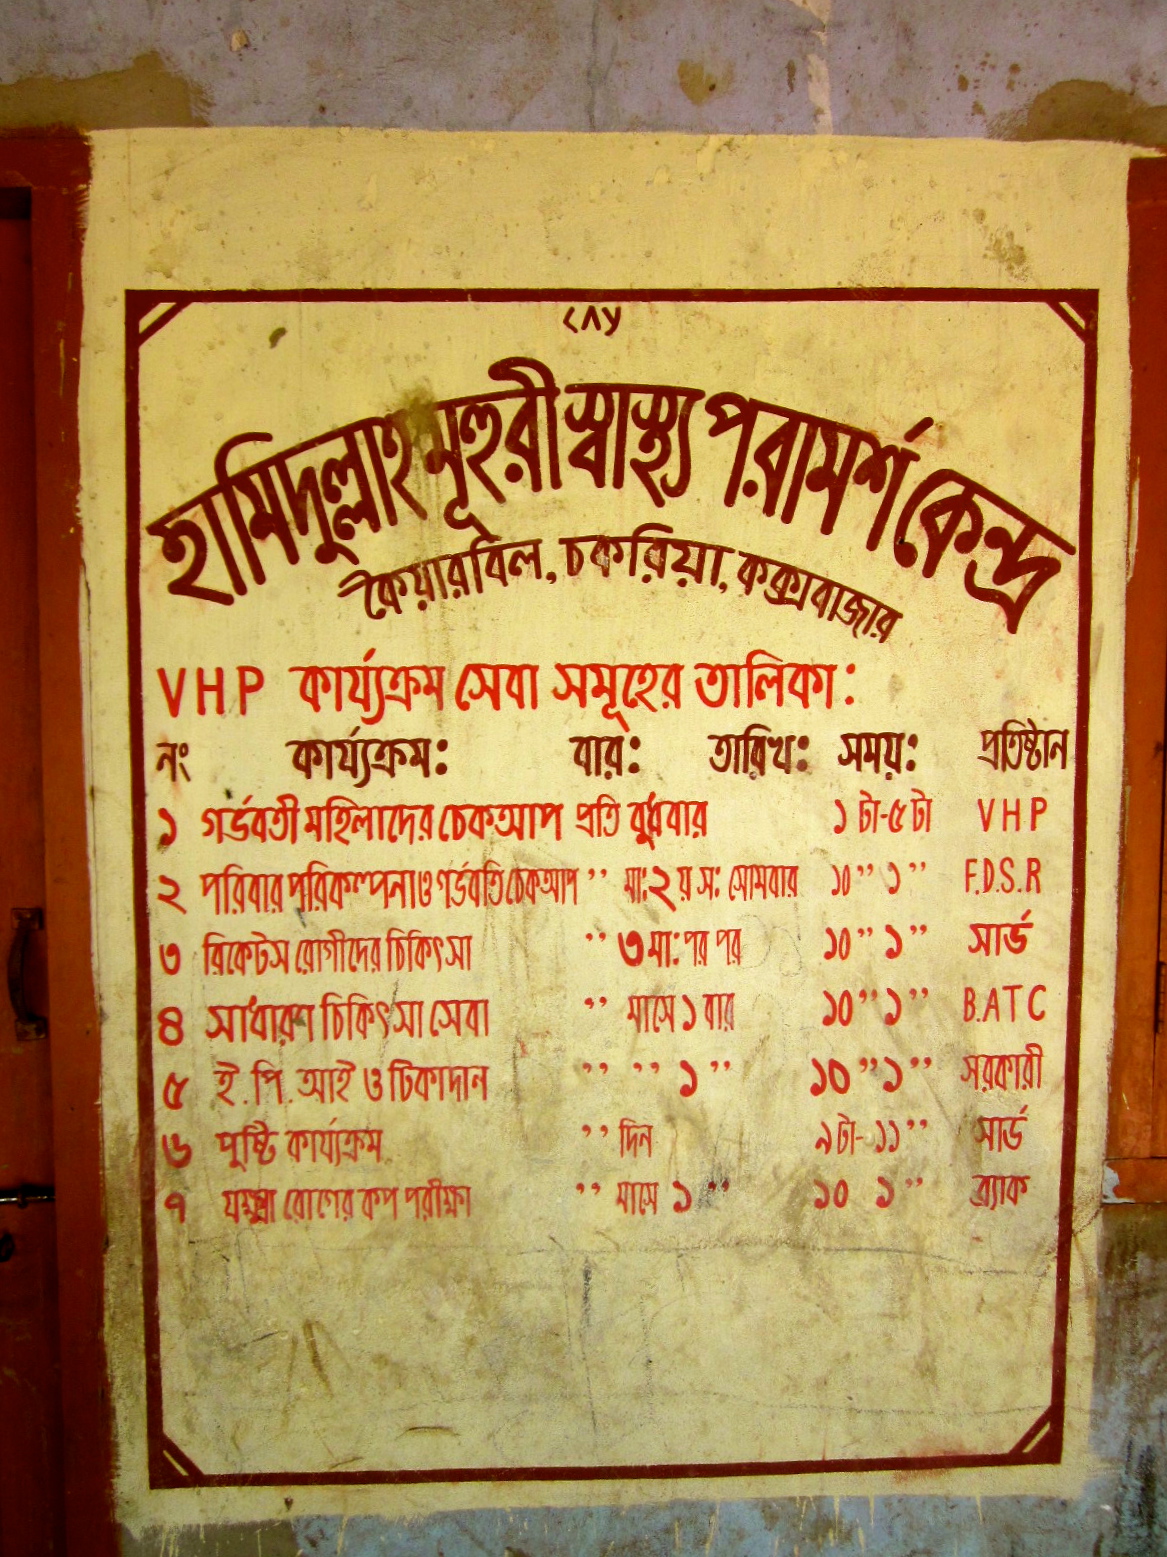 ৭৮৬
হামিদুল্লাহ মূহুরী স্বাস্থ্য পরামর্শ কেন্দ্র
কৈয়ারবিল, চকরিয়া, কক্সবাজার
VHP কার্য্যক্রম সেবা সমূহের তালিকা:
নং কার্য্যক্রম: বার: তারিখ: সময়: প্রতিষ্টান
১ গর্ভবতী মহিলাদের চেকআপ প্রতি বুধবার ১ টা-৫ টা VHP
২ পরিবার পরিকল্পনা ও গর্ভবতি চেকআপ " মা: ২ য় স: সোমবার ১০ " ১ " F.D.S.R
৩ রিকেটস রোগীদের চিকিৎসা " ৩ মা: পর পর ১০ " ১ " সার্ভ
৪ সাধারণ চিকিৎসা সেবা " মাসে ১ বার ১০ " ১ " B.A T C
৫ ই. পি. আই ও টিকাদান " " ১ " ১০ " ১ " সরকারী
৬ পুষ্টি কার্য্যক্রম " দিন ৯ টা- ১১ " সার্ভ
৭ যক্ষ্মা রোগের কপ পরীক্ষা " মাসে ১ " ১০ ১ " ব্র্যাক